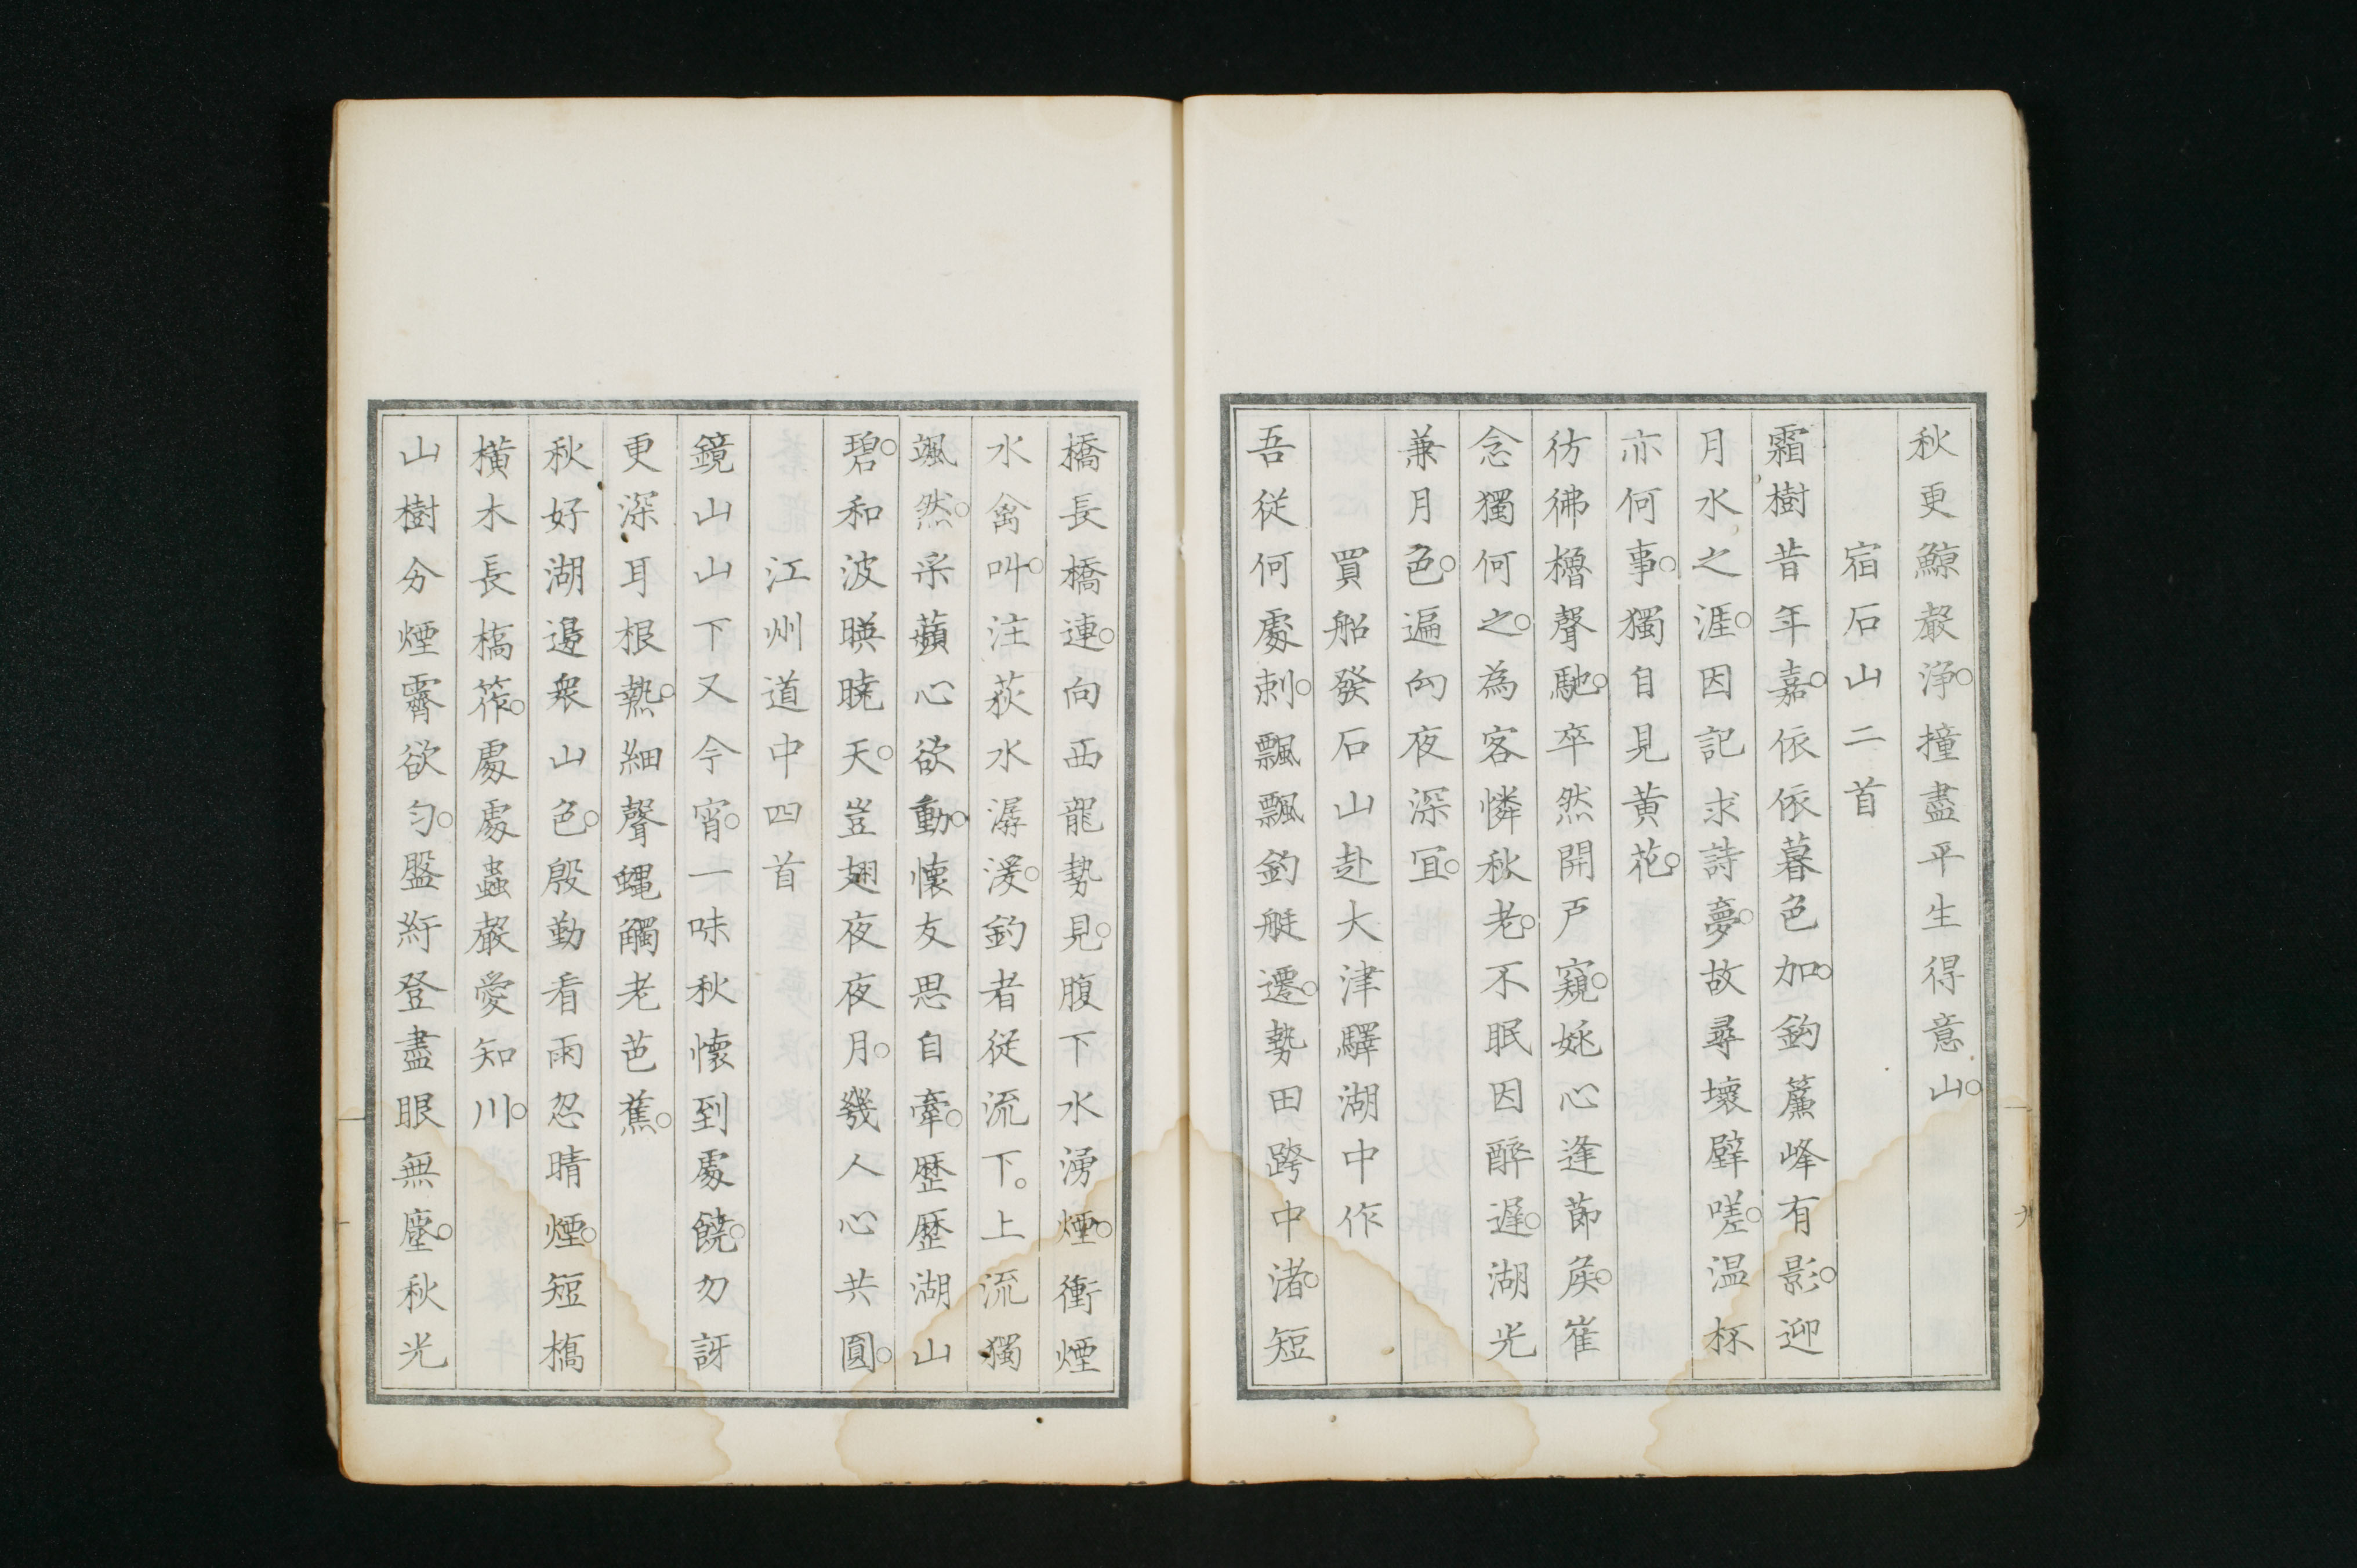 秋更鯨聲浄。撞盡平生得意山。
宿石山二首
霜樹昔年嘉。依依暮色加。鈎簾峰有影。迎
月水之涯。因記求詩夢。故尋壞壁嗟。温杯
亦何事。獨自見黄花。
彷彿櫓聲馳。卒然開戸窺。姚心逢莭矦。崔
念獨何之。為客憐秋老。不眠因酔遅。湖光
兼月色。遍向夜深冝。
買船發石山赴大津驛湖中作
吾従何處刺。飄飄釣艇遷。勢田跨中渚。短
橋長橋連。向西龍勢見。腹下水湧煙。衝煙
水禽叫。注荻水潺湲。釣者従流下。上流獨
颯然。采蘋心欲動。懐友思自牽。歴歴湖山
碧。和波暎曉天。豈翅夜夜月。幾人心共圓。
江州道中四首
鏡山山下又今宵。一味秋懐到處饒。勿訝
更深耳根熱。細聲蠅觸老芭蕉。
秋好湖邊衆山色。殷勤看雨忽晴煙。短橋
横木長橋筰。處處蟲聲愛知川。
山樹分煙霽欲匀。盤紆登盡眼無塵。秋光
九